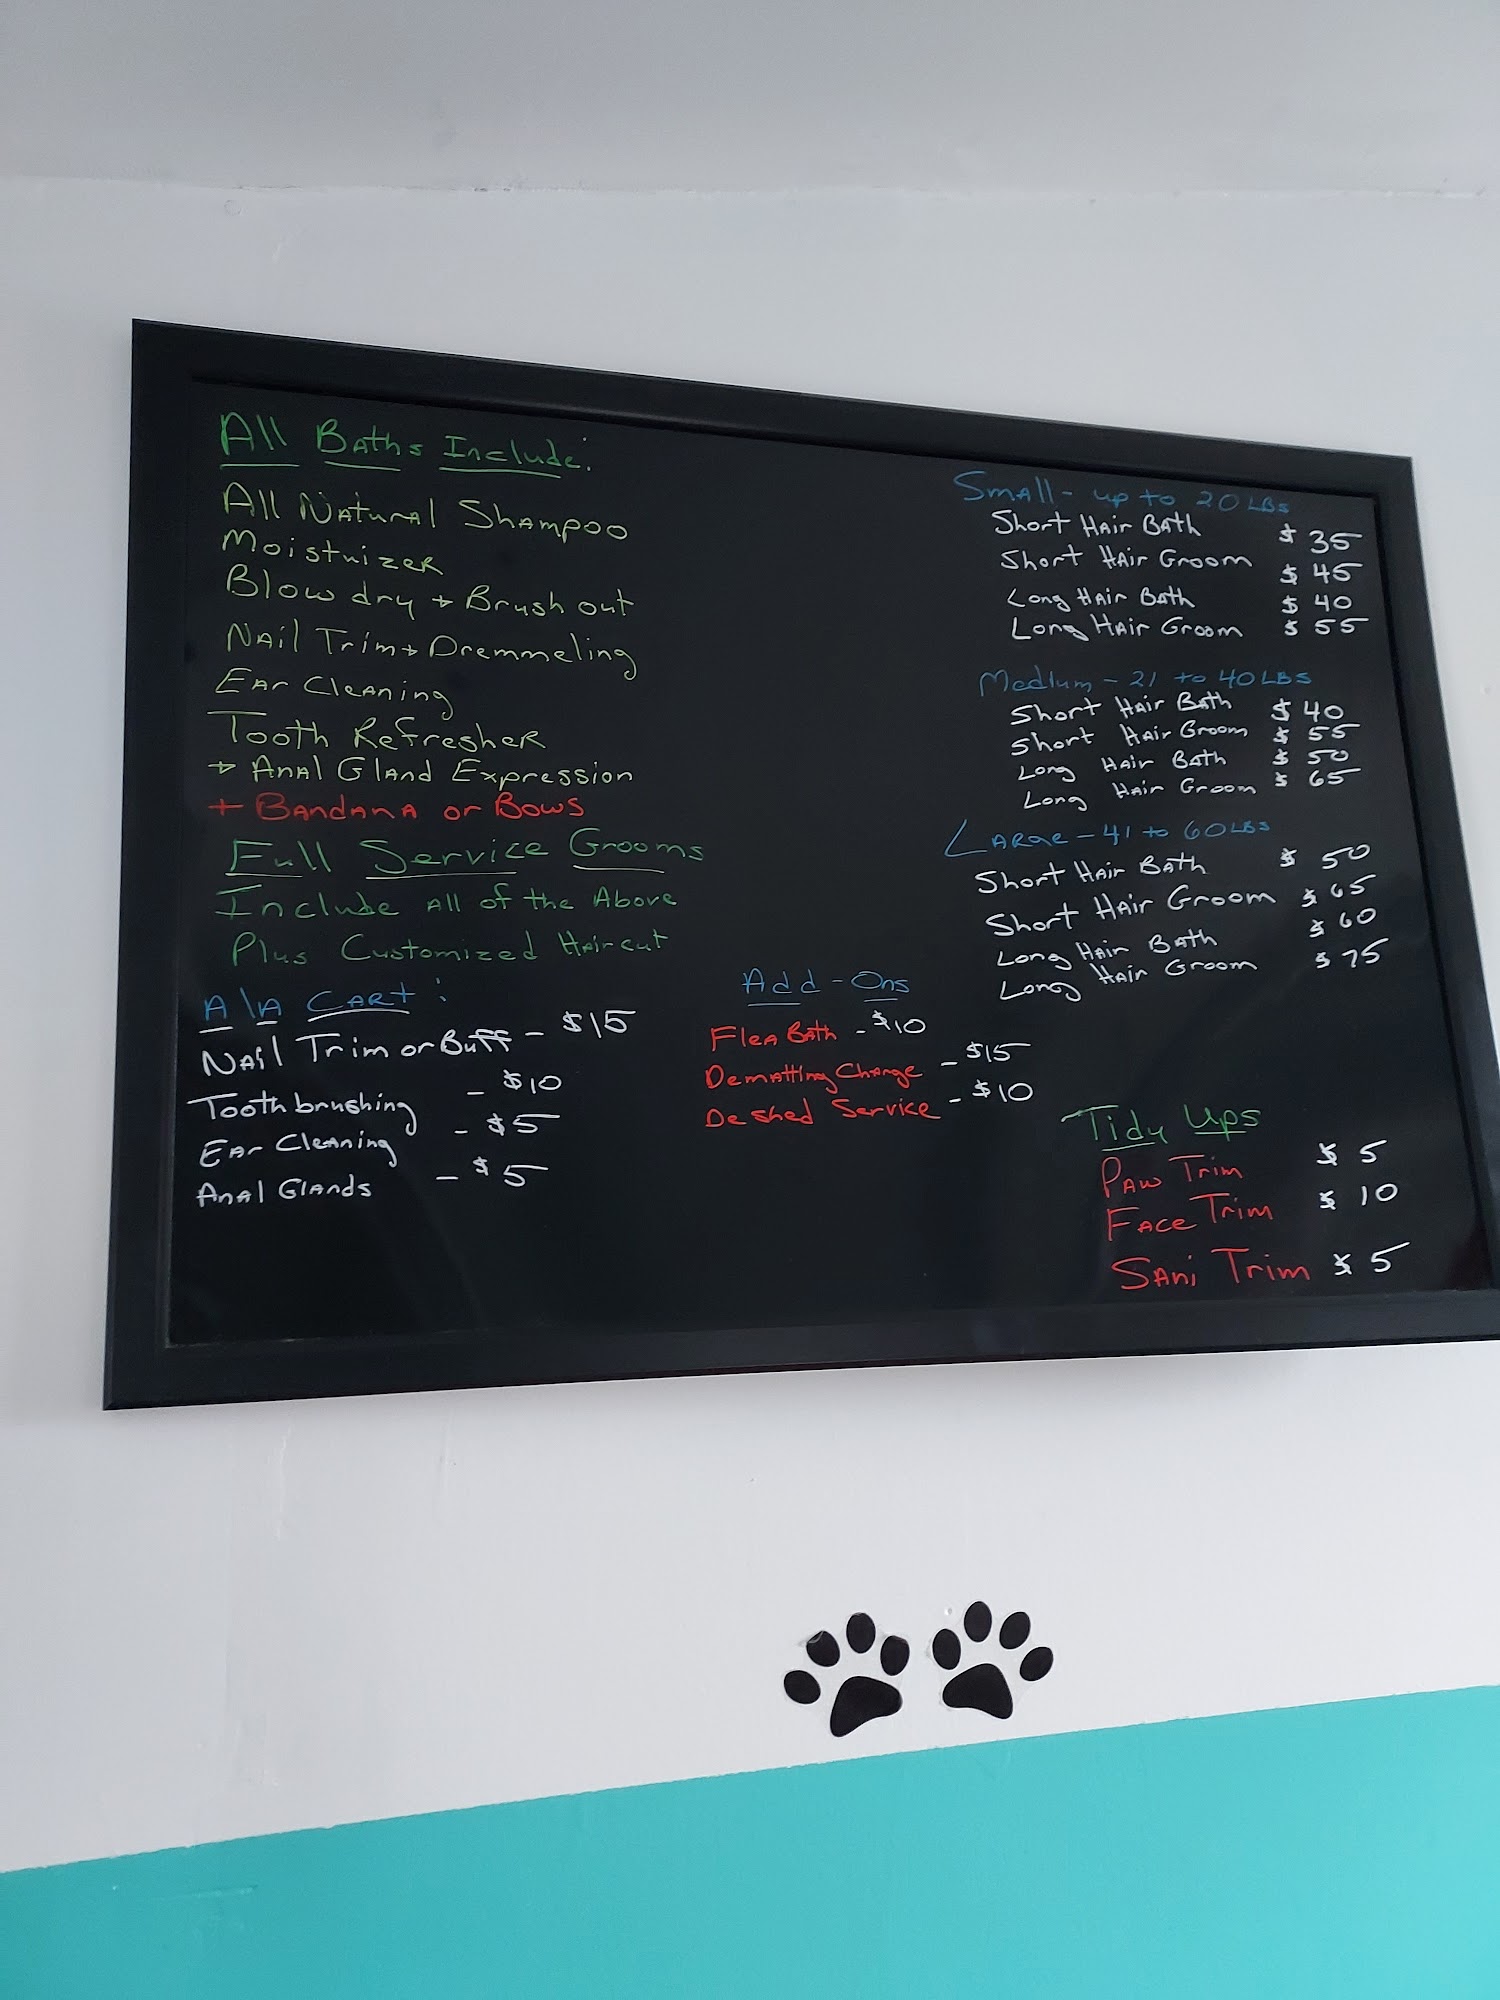 All Baths Include:
All Natural Shampoo
Moistuizer
Blow dry + Brush out
Nail Trim + Dremmeling
Ear Cleaning
Tooth Refresher
+ Anal Gland Expression
+ Bandana or Bows
Full Service Grooms
Include All of the Above
Plus Customized Haircut
A la Cart:
Nail Trim or Buff - $15
Toothbrushing - $10
Ear Cleaning - $5
Anal Glands - $5
Add-Ons
Flea Bath - $10
Dematting Charge - $15
Deshed Service - $10
Small - up to 20 LBS
Short Hair Bath $35
Short Hair Groom $45
Long Hair Bath $40
Long Hair Groom $55
Medium - 21 to 40 LBS
Short Hair Bath $40
Short Hair Groom $55
Long Hair Bath $50
Long Hair Groom $65
Large - 41 to 60 LBS
Short Hair Bath $50
Short Hair Groom $65
Long Hair Bath $60
Long Hair Groom $75
Tidy Ups
Paw Trim $5
Face Trim $10
Sani Trim $5